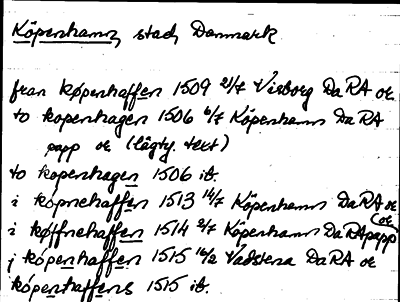 Köpenhamn, stad, Danmark
fran køpenhaffen 1509 21/7 Visborg DaRA or.
to kopenhagen 1506 6/7 Köpenhamn DaRA
papp or (lågty. text)
to kopenhagen 1506 ib.
i kópnehaffen 1513 14/7 Köpenhamn DaRA or
i køffnehaffen 1514 2/7 Köpenhamn DaRA papp (or.
j kópenhaffen 1515 16/2 Vadstena DaRA or
kópenhaffens 1515 ib.